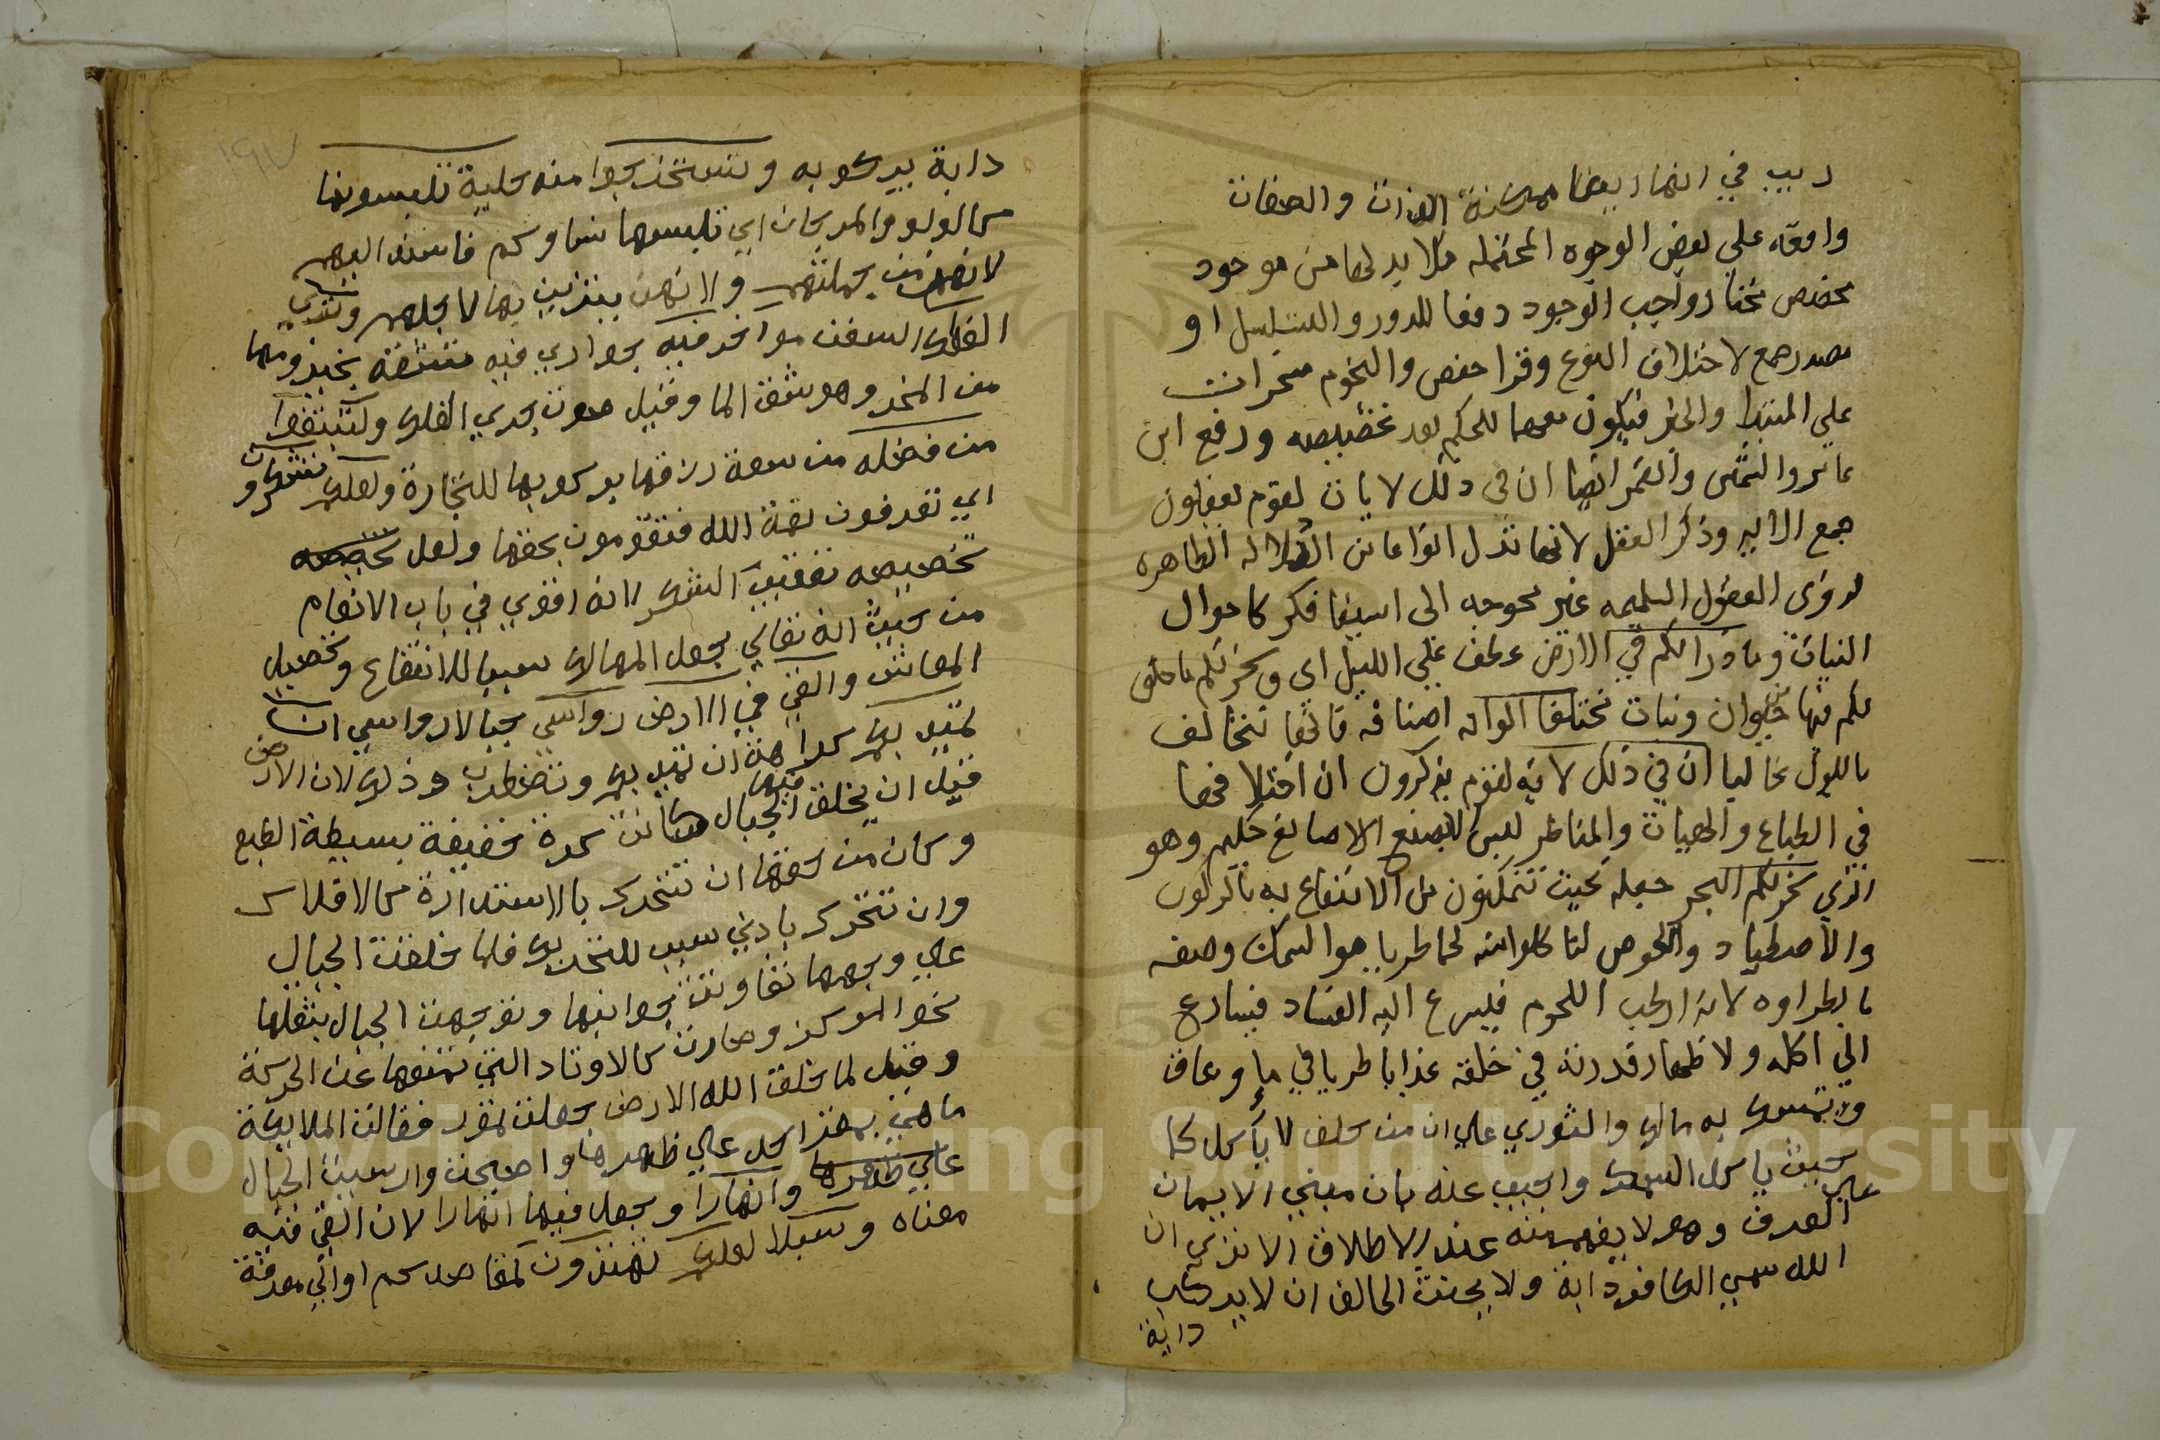 ريب في انها ايضا ممكنة الذات والصفات
واقعة علي بعض الوجوه المحتمله فلا بد لها من موجد
مخصص مختار واجب الوجود دفعا للدور والتسلسل او
مصدر جمع لاختلاف النوع وقرا حفص والنجوم مسخرات
علي المبتدا والخبر فيكون تعميما للحكم بعد تخصيصه ورفع ابن
عامر والشمس والقمر ايضا ان في ذلك لايات لقوم يعقلون
جمع الاية وذكر العقل لانها تدل انواعا من الدلالة الظاهره
لذوى العقول السليمه غير محوجه الى استيفا فكر كاحوال
النبات وما ذرا لكم في الارض عطف علي الليل اى وسخر لكم ما خلق
لكم فيها من حيوان ونبات مختلفا الوانه اصنافه فانها تتخالف
باللون غالبا ان في ذلك لاية لقوم يذكرون ان اختلافها
في الطباع والهيات والمناظر ليس الا بصنع صانع حكيم وهو
الذي سخر لكم البحر جعله بحيث تتمكنون من الانتفاع به بالركوب
والاصطياد والغوص لتاكلوا منه لحما طريا هو السمك وصفه
بالطراوه لانه ارطب اللحوم فيسرع اليه الفساد فيسارع
الي اكله ولاظهار قدرته في خلقه عذبا طريا في ماء زعاق
وتمسك به مالك والثوري علي ان من حلف لا ياكل لحما
حنث باكل السمك واجيب عنه بان مبني الايمان
علي العرف وهو لا يفهم منه عند الاطلاق الا تري ان
الله سمي الكافر دابة ولا يحنث الحالف ان لا يركب
دابة
دابة بركوبه وتستخرجوا منه حلية تلبسونها
كالولو والمرجان اي تلبسها نساوكم فاسند اليهم
لانهن من جملتهم ولانهن يتزين بها لاجلهم وتري
الفلك السفن مواخر فيه جواري فيه تشقه بحيزومها
من المخر وهو شق الما وقيل صوت جري الفلك ولتبتغوا
من فضله من سعة رزقه بركوبها للتجارة ولعلكم تشكرون
اي تعرفون نعمة الله فتقومون بحقها ولعل تخصيصه
تخصيصه بتعقيب الشكر لانه اقوي في باب الانعام
من حيث انه تعالي جعل المهالك سببا للانتفاع وتحصيل
المعاش والقي في الارض رواسي جبالا رواسي ان
تميد بكم كراهة ان تميد بكم وتضطرب وذلك لان الارض
قبل ان يخلق فيها الجبال كانت كرة خفيفة بسيطة الطبع
وكان من حقها ان تتحرك بالاستدارة كالافلاك
وان تتحرك بادني سبب للتحريك فلما خلقت الجبال
علي وجهها تفاوتت جوانبها وتوجهت الجبال بثقلها
نحو المركز وصارت كالاوتاد التي تمنعها عن الحركة
وقيل لما خلق الله الارض جعلت تمور فقالت الملايكة
ما هي بمقر احد علي ظهرها فاصبحت وارسيت الجبال
علي ظهرها وانهارا وجعل فيها انهارا لان القي فيه
معناه وسبلا لعلكم تهتدون لمقاصدكم او الي معرفة